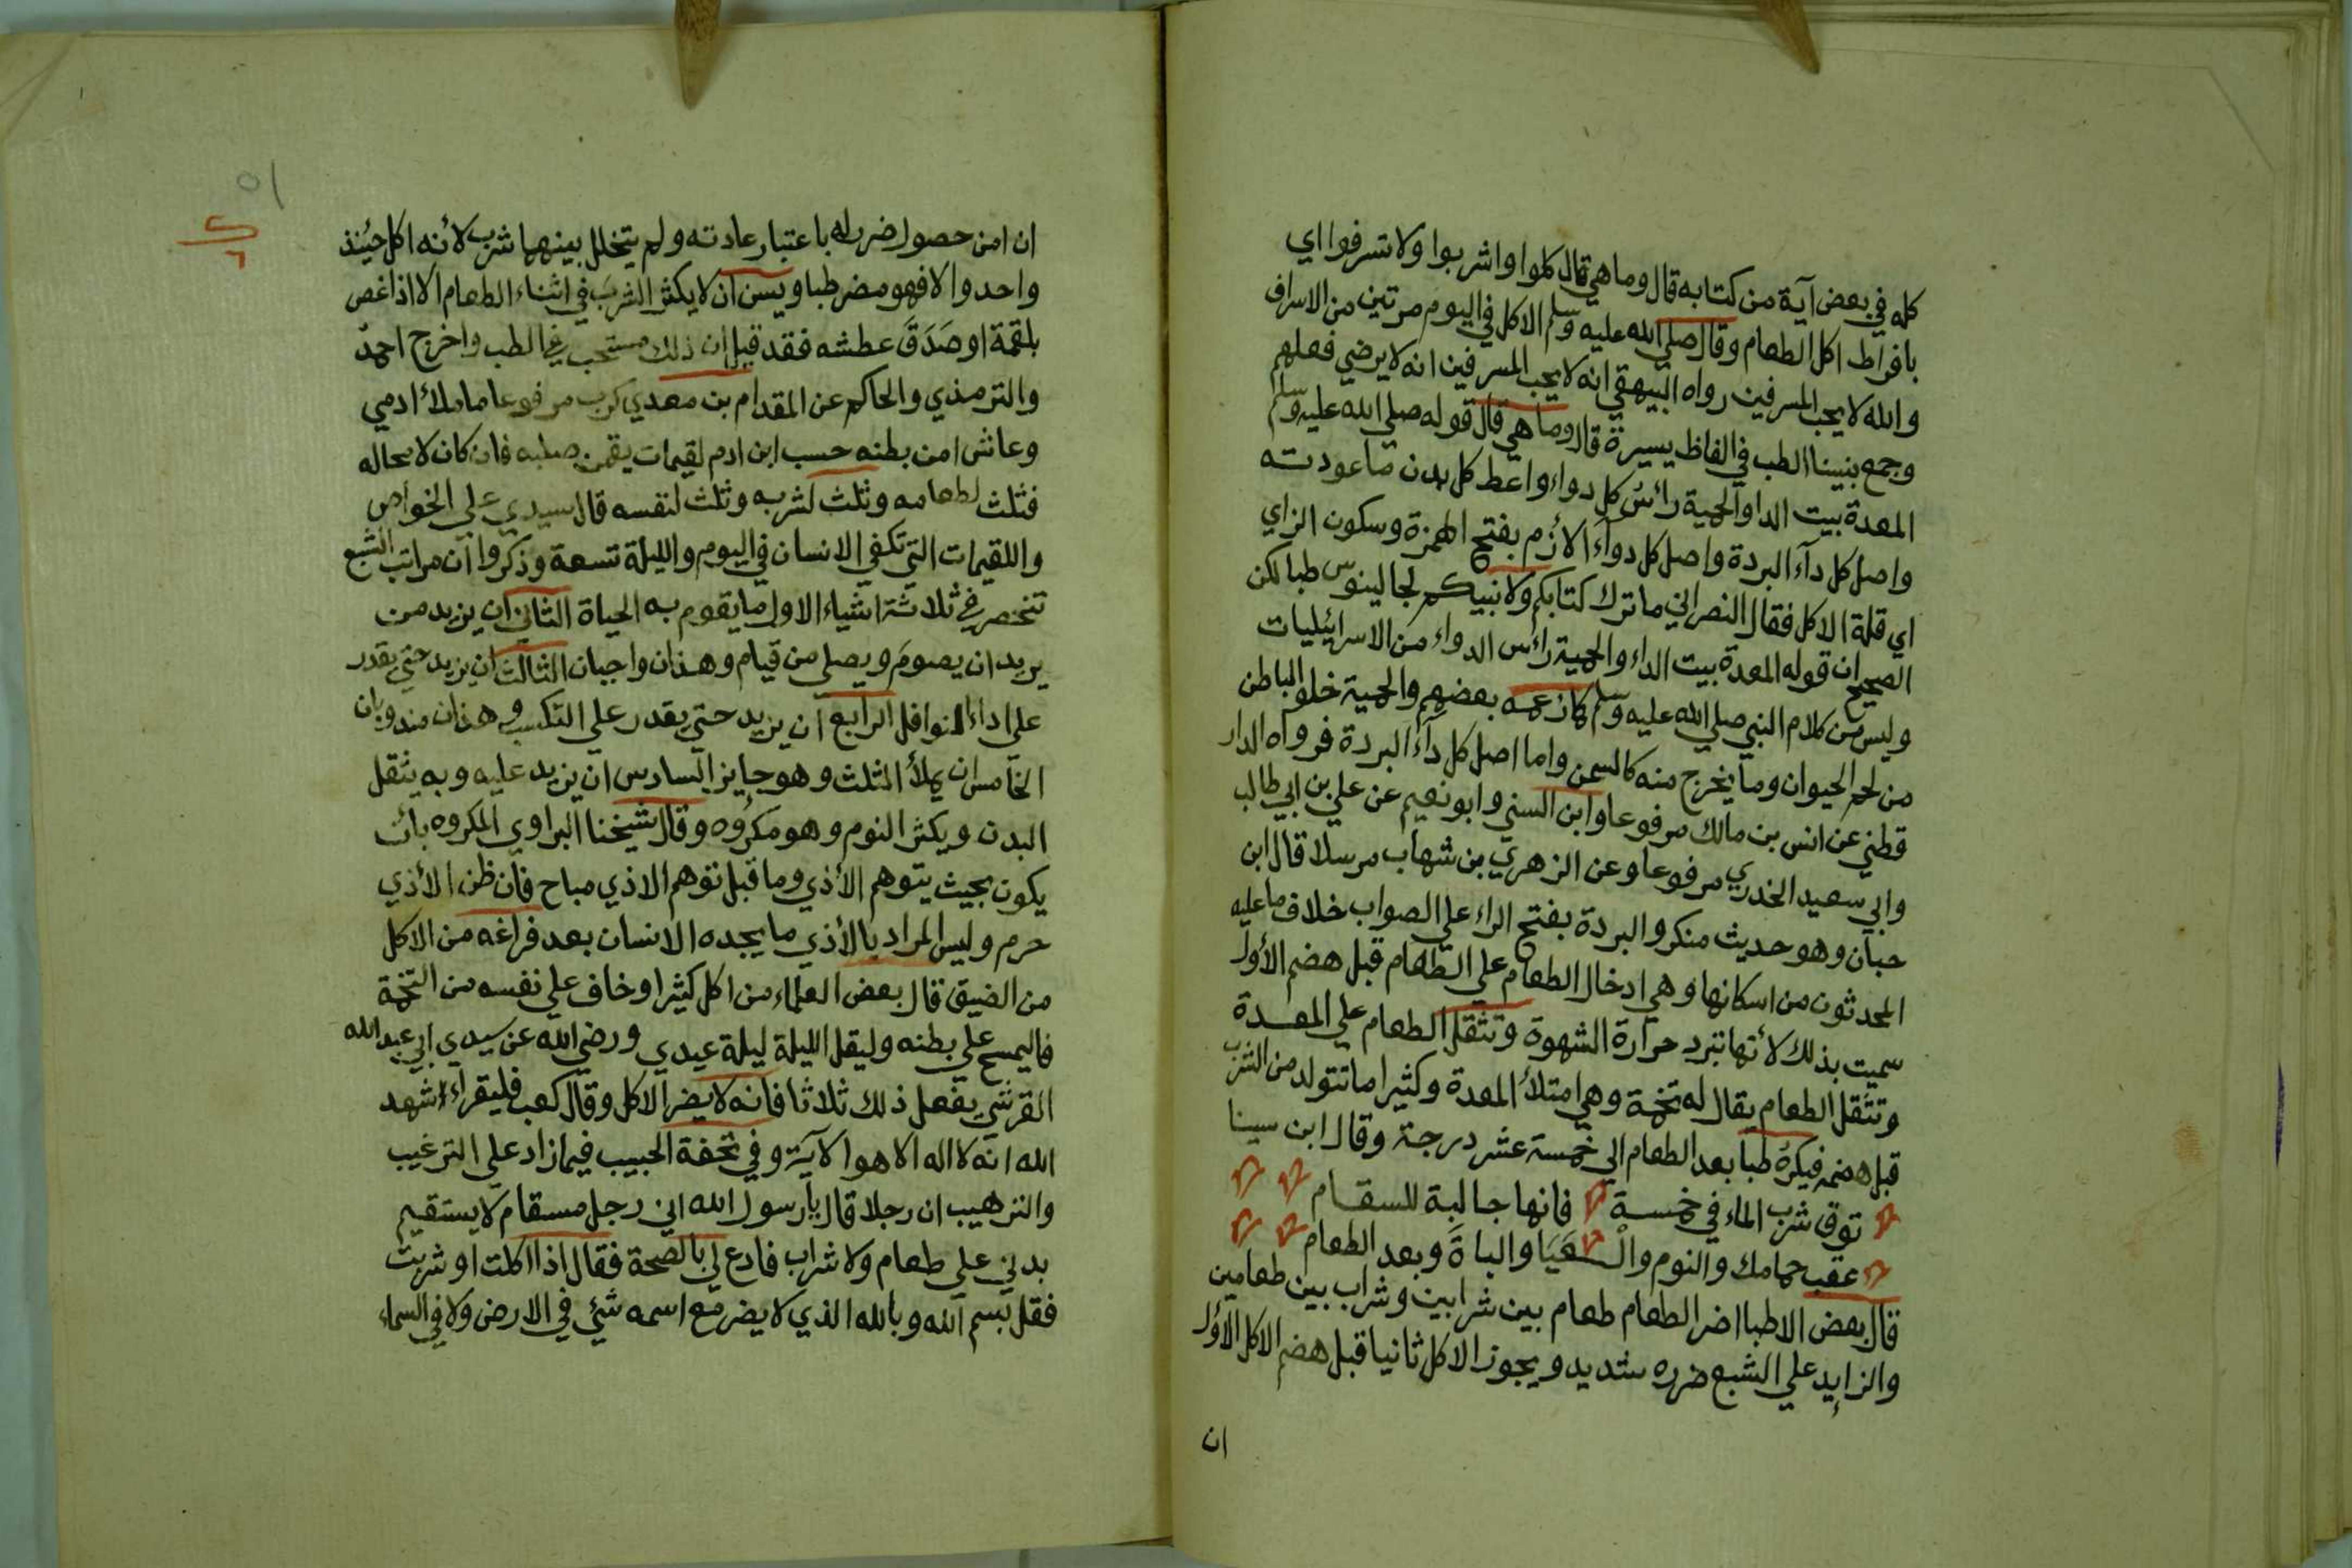 كله في بعض آية من كتابه قال وما هي قال كلوا واشربوا ولا تسرفوا اي
بافراط اكل الطعام وقال صلي الله عليه وسلم الاكل في اليوم مرتين من الاسراف
والله لا يحب المسرفين رواه البيهقي انه لا يحب المسرفين انه لا يرضي فعلهم
وجمع نبينا الطب في الفاظ يسيرة قال وما هي قال قوله صلي الله عليه وسلم
المعدة بيت الدا والحمية رأس كل دواء واعط كل بدن ما عودته
واصل كل دآء البردة واصل كل دوآء الأزم بفتح الهمزة وسكون الزاي
اي قلة الاكل فقال النصراني ما ترك كتابكم ولا نبيكم لجالينوس طبا لكن
الصحيح ان قوله المعدة بيت الداء والحمية رأس الدواء من الاسرائيليات
وليس من كلام النبي صلي الله عليه وسلم كما زعمه بعضهم والحمية خلو الباطن
من لحم الحيوان وما يخرج منه كالسمن واما اصل كل دآء البردة فرواه الدار
قطني عن انس بن مالك مرفوعا وابن السني وابو نعيم عن علي بن ابي طالب
وابي سعيد الخدري مرفوعا وعن الزهري بن شهاب مرسلا قال ابن
حبان وهو حديث منكر والبردة بفتح الراء علي الصواب خلاف ما عليه
المحدثون من اسكانها وهي ادخال الطعام علي الطعام قبل هضم الأول
سميت بذلك لأنها تبرد حرارة الشهوة وتثقل الطعام علي المعدة
وتثقل الطعام يقال له تخمة وهي امتلأ المعدة وكثيرا ما تتولد من الشرب
قبل هضمه فيكره طبا بعد الطعام الي خمسة عشر درجة وقال ابن سينا
توق شرب الماء في خمسة فانها جالبة للسقام
عقب حمامك والنوم والعَيَا والباةَ وبعد الطعام
قال بعض الاطبا اضر الطعام طعام بين شرابين وشراب بين طعامين
والزايد علي الشبع ضرره شديد ويجوز الاكل ثانيا قبل هضم الاكل الأول
ان
٥١
ان امن حصول ضرر له باعتبار عادته ولم يتخلل بينهما شرب لأنه اكل حينئذ
واحد والا فهو مضر طبا ويسن ان لا يكثر الشرب في اثناء الطعام الا اذا غص
بلقمة او صَدَقَ عطشه فقد قيل ان ذلك مستحب في الطب واخرج احمد
والترمذي والحاكم عن المقدام بن معدي كرب مرفوعا ما ملأ ادمي
وعاش ا من بطنه حسب ابن ادم لقيمات يقمن صلبه فان كان لا محاله
فثلث لطعامه وثلث لشربه وثلث لنفسه قال سيدي علي الخواص
واللقيمات التي تكفي الانسان في اليوم والليلة تسعة وذكروا ان مراتب الشبع
تنحصر في ثلاثة اشياء الاول ما يقوم به الحياة الثاني ان يزيد من
يريد ان يصوم ويصلي من قيام وهذان واجبان الثالث ان يزيد حتي يقدر
علي اداء النوافل الرابع ان يزيد حتي يقدر علي التكسب وهذان مندوبان
الخامس ان يملأ الثلث وهو جايز السادس ان يزيد عليه وبه يثقل
البدن ويكثر النوم وهو مكروه وقال شيخنا البراوي المكروه بان
يكون بحيث يتوهم الأذي وما قبل توهم الاذي مباح فان ظن الأذي
حرم وليس المراد بالأذي ما يجده الانسان بعد فراغه من الاكل
من الضيق قال بعض العلماء من اكل كثيرا وخاف علي نفسه من التخمة
فاليمسح علي بطنه وليقل الليلة ليلة عيدي ورضي الله عن سيدي ابي عبد الله
القرشي يفعل ذلك ثلاثا فانه لا يضر الاكل وقال كعب فليقرأ اشهد
الله انه لا اله الا هو الآية وفي تحفة الحبيب فيما زاد علي الترغيب
والترهيب ان رجلا قال يا رسول الله اني رجل مسقام لا يستقيم
بدني علي طعام ولا شراب فادع لي بالصحة فقال اذا اكلت او شربت
فقل بسم الله وبالله الذي لا يضر مع اسمه شئي في الارض ولا في السماء